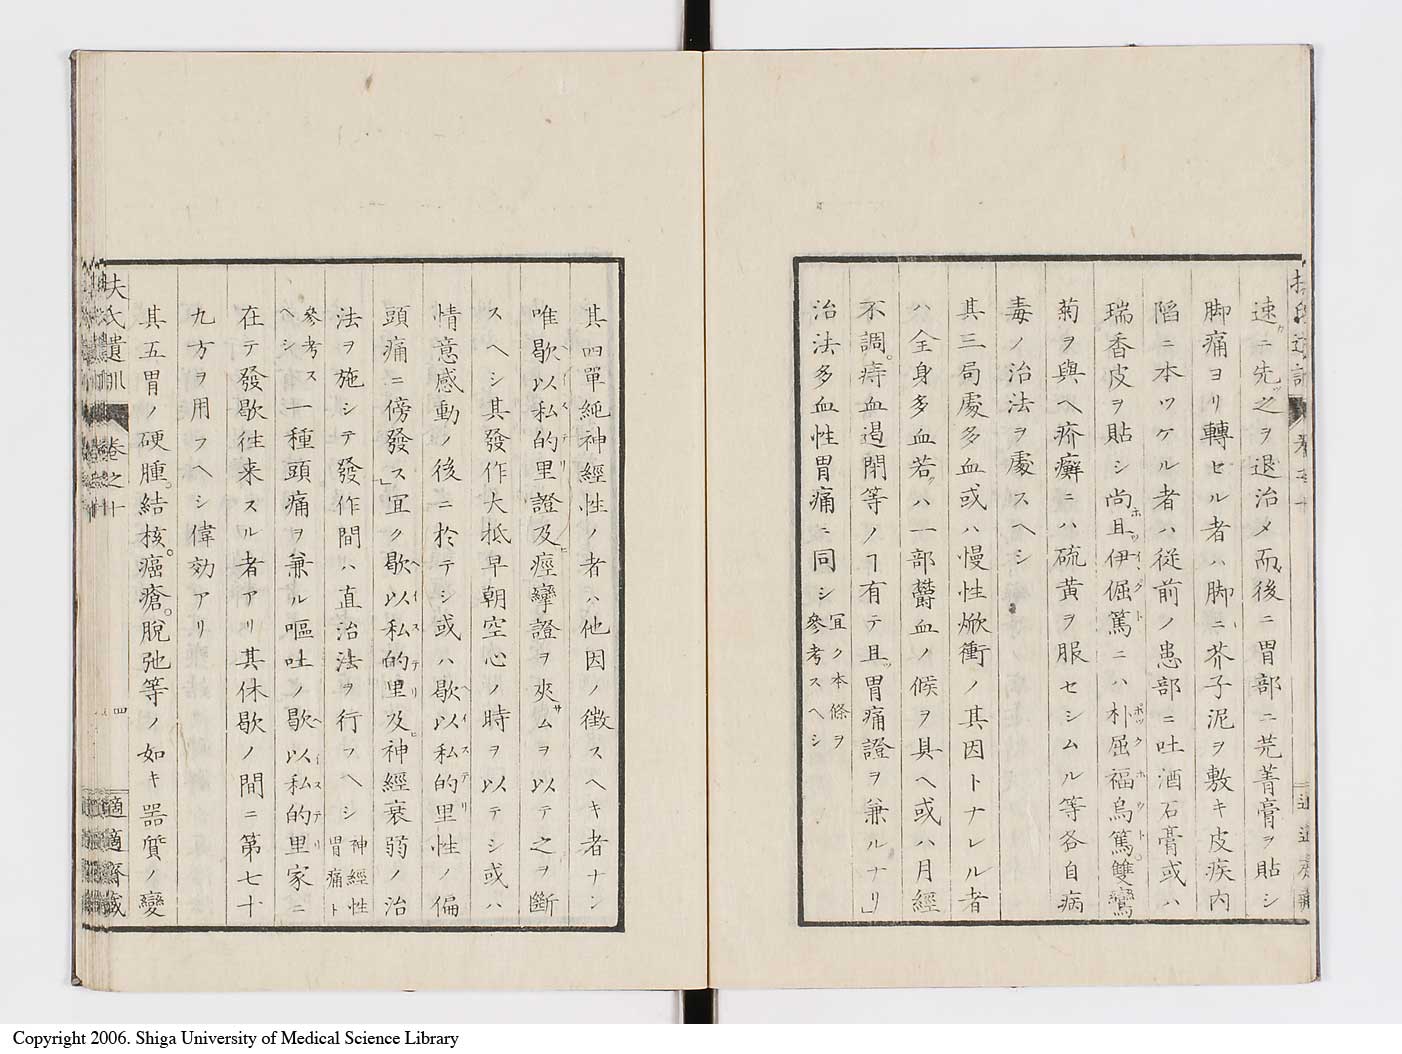 速ニ先ツ之ヲ退治メ而後ニ胃部ニ芫菁膏ヲ貼シ
脚痛ヨリ轉セル者ハ脚ニ芥子泥ヲ敷キ皮疾内
陷ニ本ツケル者ハ従前ノ患部ニ吐酒石膏或ハ
瑞香皮ヲ貼シ尚且伊倔篤ニハ朴屈福烏篤雙鸞
菊ヲ與ヘ疥癬ニハ硫黄ヲ服セシムル等各自病
毒ノ治法ヲ處スヘシ
其三局處多血或ハ慢性焮衝ノ其因トナレル者
ハ全身多血若クハ一部欝血ノ候ヲ具ヘ或ハ月經
不調。痔血遏閉等ノヿ有テ且ツ胃痛證ヲ兼ルナリ」
治法多血性胃痛ニ同シ 冝ク本條ヲ
參考スヘシ
其四單純神經性ノ者ハ他因ノ徴スヘキ者ナシ
唯歇以私的里證及ヒ痙攣證ヲ夾サムヲ以テ之ヲ斷
スヘシ其發作大抵早朝空心ノ時ヲ以テシ或ハ
情意感動ノ後ニ於テシ或ハ歇以私的里性ノ偏
頭痛ニ傍發ス」冝ク歇以私的里及ヒ神經衰弱ノ治
法ヲ施シテ發作間ハ直治法ヲ行フヘシ 神經性
胃痛ト
參考ス
ヘシ 一種頭痛ヲ兼ル嘔吐ノ歇以私的里家ニ
在テ發歇往来スル者アリ其休歇ノ間ニ第七十
九方ヲ用フヘシ偉効アリ
其五胃ノ硬腫。結核。癌瘡。脫弛等ノ如キ器質ノ變
扶氏遺訓 卷之十 四 適適齋藏